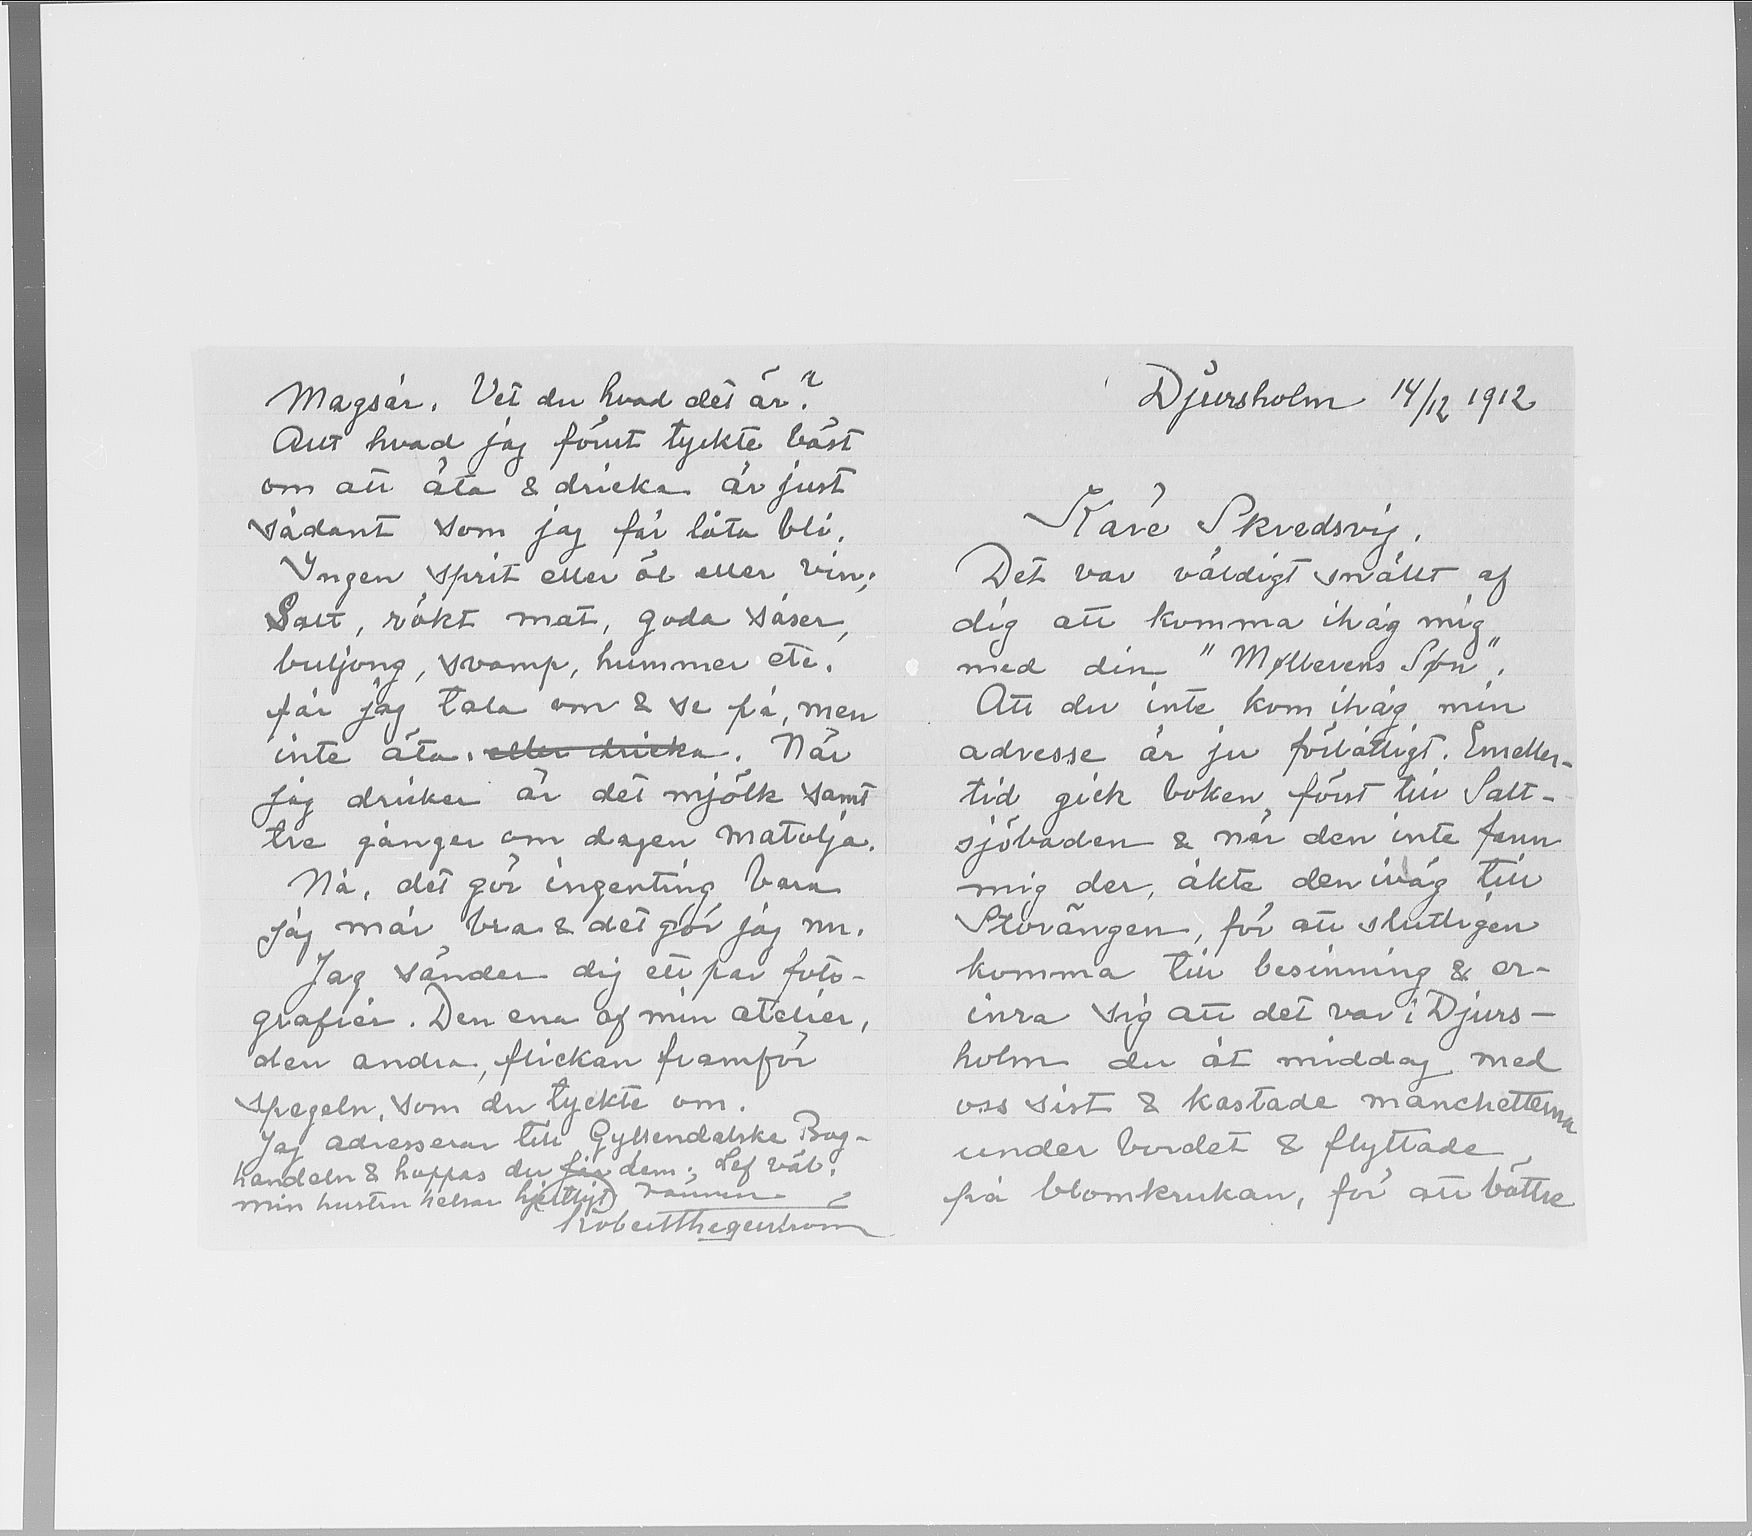 Djursholm 14/12 1912
Käre Skredsvig.
Det var väldigt snällt af
dig att komma ihåg mig
med din "Møllerens Søn".
Att du inte kom ihåg min
adresse är ju förlåtligt. Emeller-
tid gick boken först till Salt-
sjöbaden & när den inte fann
mig der, åkte den iväg till
Storängen, för att slutligen
komma till besinning & er-
inra sig att det var i Djurs-
holm du åt middag med
oss sist & kastade manchetterna
under bordet & flyttade
på blomkrukan, för att bättre
Magsår. Vet du hvad det är?
Allt hvad jag förut tyckte bäst
om att äta & dricka är just
sådant som jag får låta bli.
Ingen sprit eller öl eller vin;
Salt, rökt mat, goda såser,
buljong, svamp, hummer etc.
får jag tala om & se på, men
inte äta. eller dricka. När
jag dricker är det mjölk samt
tre gånger om dagen matolja.
Nå, det gör ingenting bara
jag mår bra & det gör jag nu.
Jag sänder dig ett par foto-
grafier. Den ena af min atelier,
den andra, flickan framför
spegeln, som du tyckte om.
Jag adresserar till Gyldendalske Bog-
handeln & hoppas du får dem. Lef väl.
min hustru helsar hjertligt vännen
Robert Thegerström